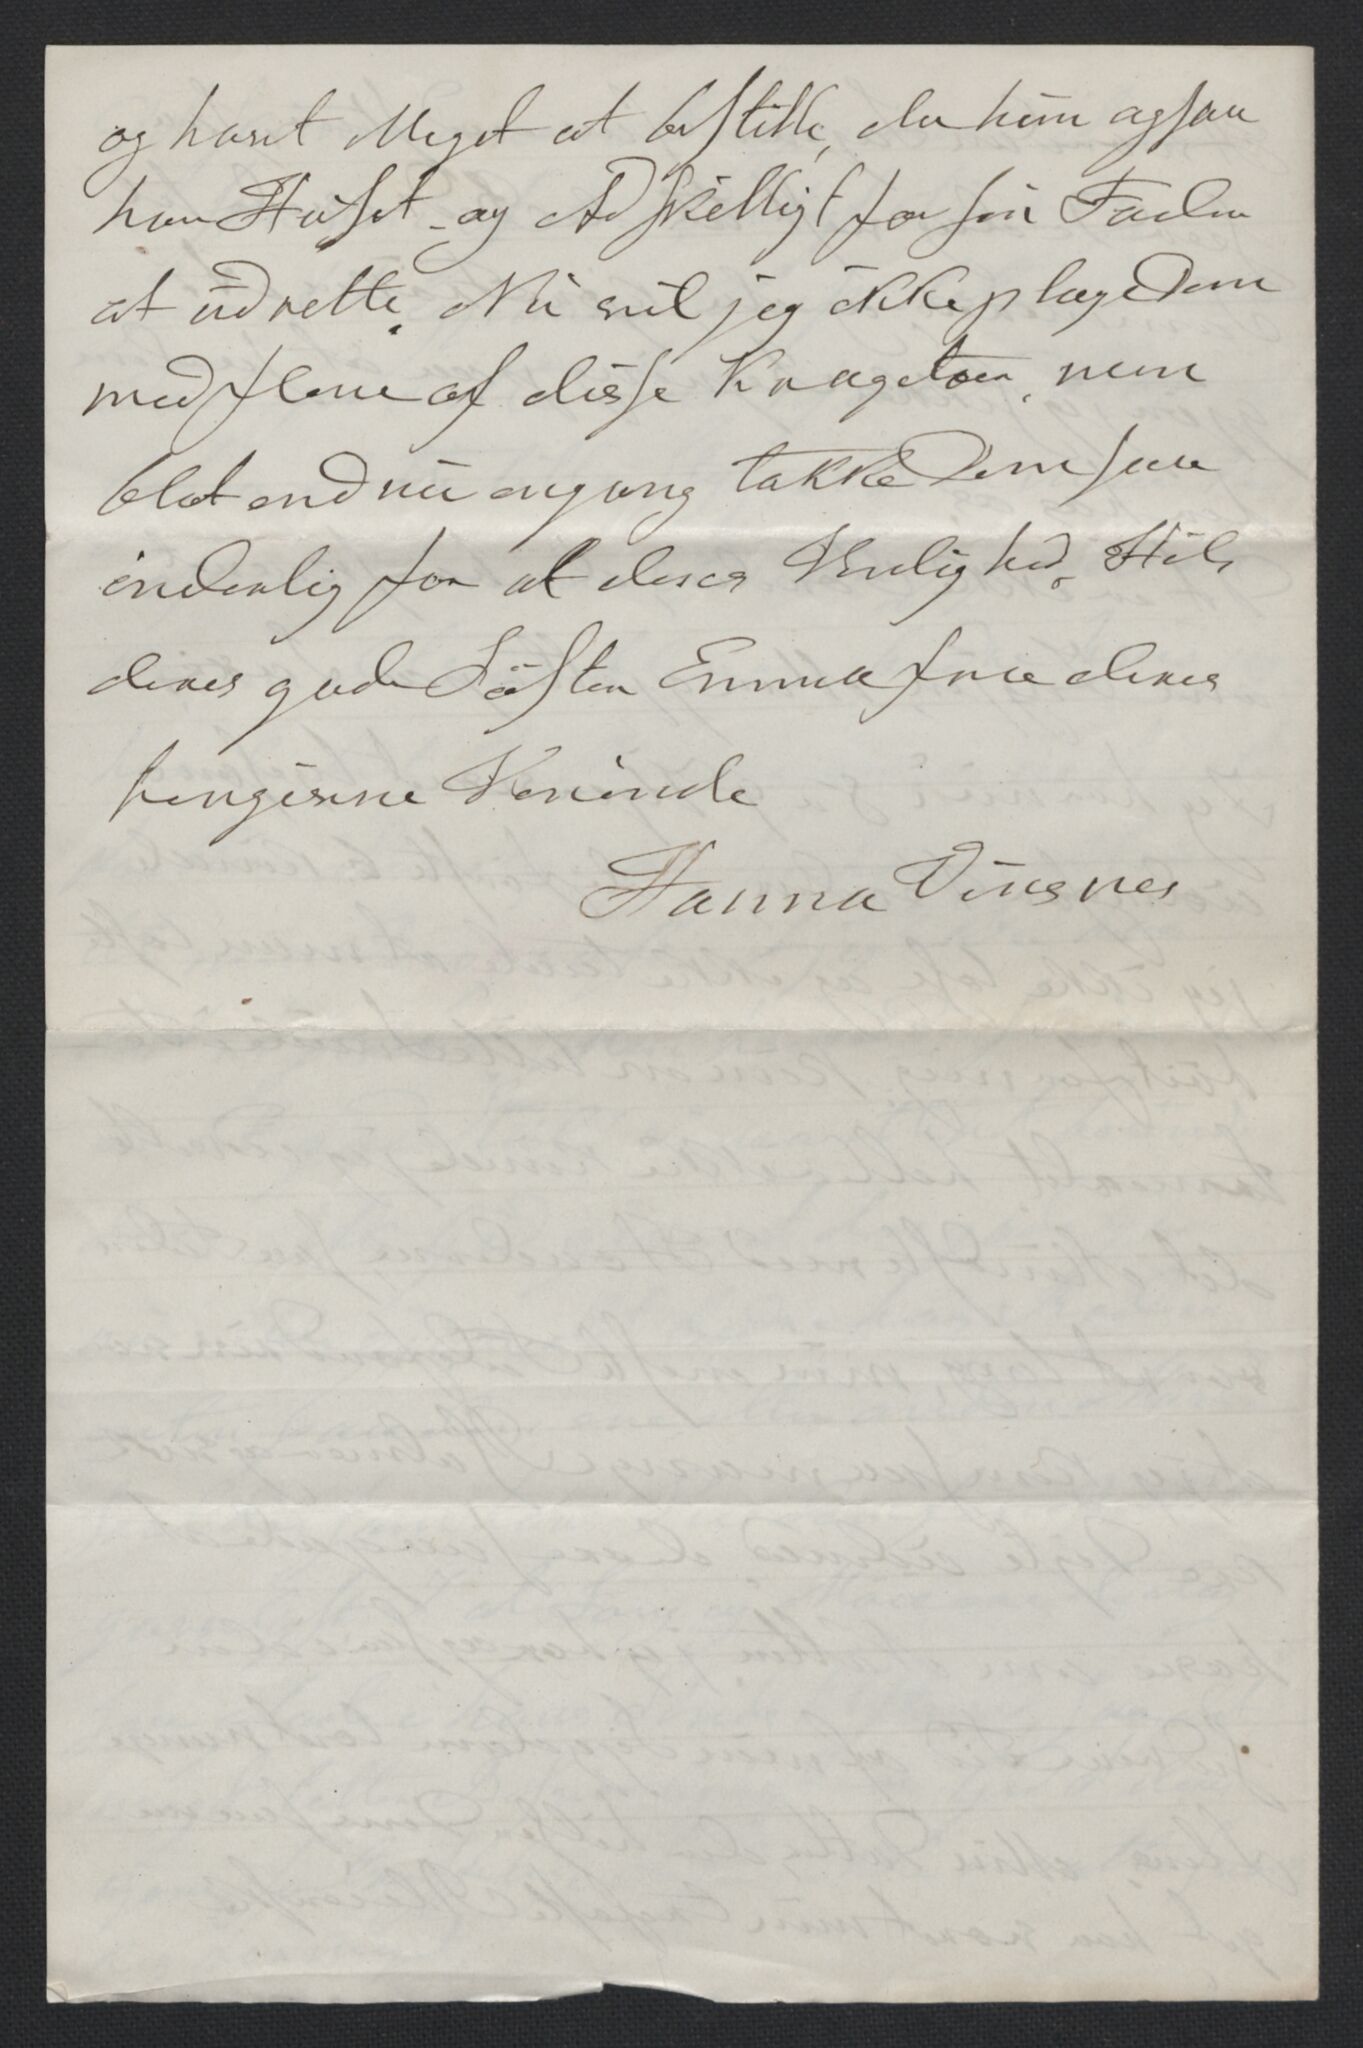 og havt Meget at bestille, da hun ogsaa
har Huset og Adskilligt for sin Fader
at udrette. Nu vil jeg ikke plage Dem
med flere af disse Kragetær, men
blot endnu engang takke Dem saa
inderlig for al deres Venlighed. Hils
deres gode Søster Emma fra deres
hengivne Veninde
Hanna Vinsnes